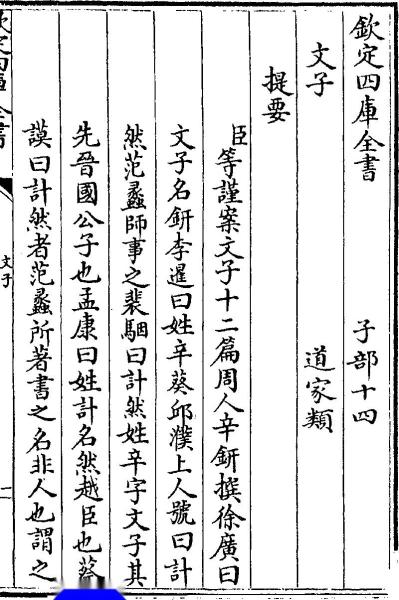 欽定四庫全書 子部十四
文子 道家類
提要
臣等謹案文子十二篇周人辛鈃撰徐廣曰
文子名鈃李暹曰姓辛葵邱濮上人號曰計
然范蠡師事之裴駰曰計然姓辛字文子其
先晉國公子也孟康曰姓計名然越臣也蔡
謨曰計然者范蠡所著書之名非人也謂之
欽定四庫全書
文子